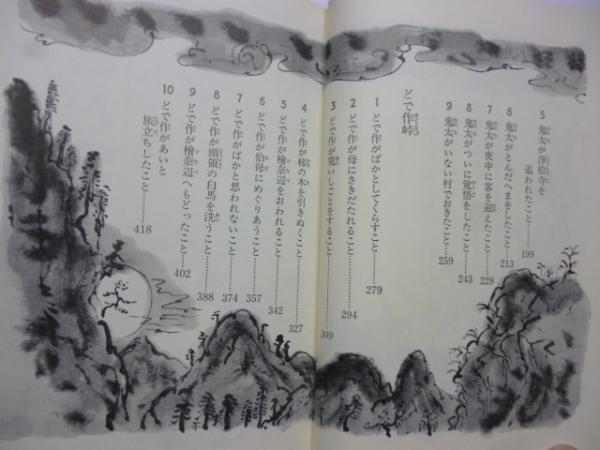 5 鬼太が浄松寺を
追われたこと……199
6 鬼太がとんだへまをしたこと……213
7 鬼太が夜中に客を迎えたこと……228
8 鬼太がついに覚悟をしたこと……243
9 鬼太がいない村でおきたこと……259
とで作峠
1 とで作がばかとしてくらすこと……279
2 とで作が母にさきだたれること……294
3 とで作が荒いしごとをすること……309
4 とで作が柿の木を引きぬくこと……327
5 とで作が檜奈辺をおわれること……342
6 とで作が伯母にめぐりあうこと……357
7 とで作がばかと思われないこと……374
8 とで作が頭領の白馬を洗うこと……388
9 とで作が檜奈辺へもどったこと……402
10 とで作があいと
旅立ちしたこと……418